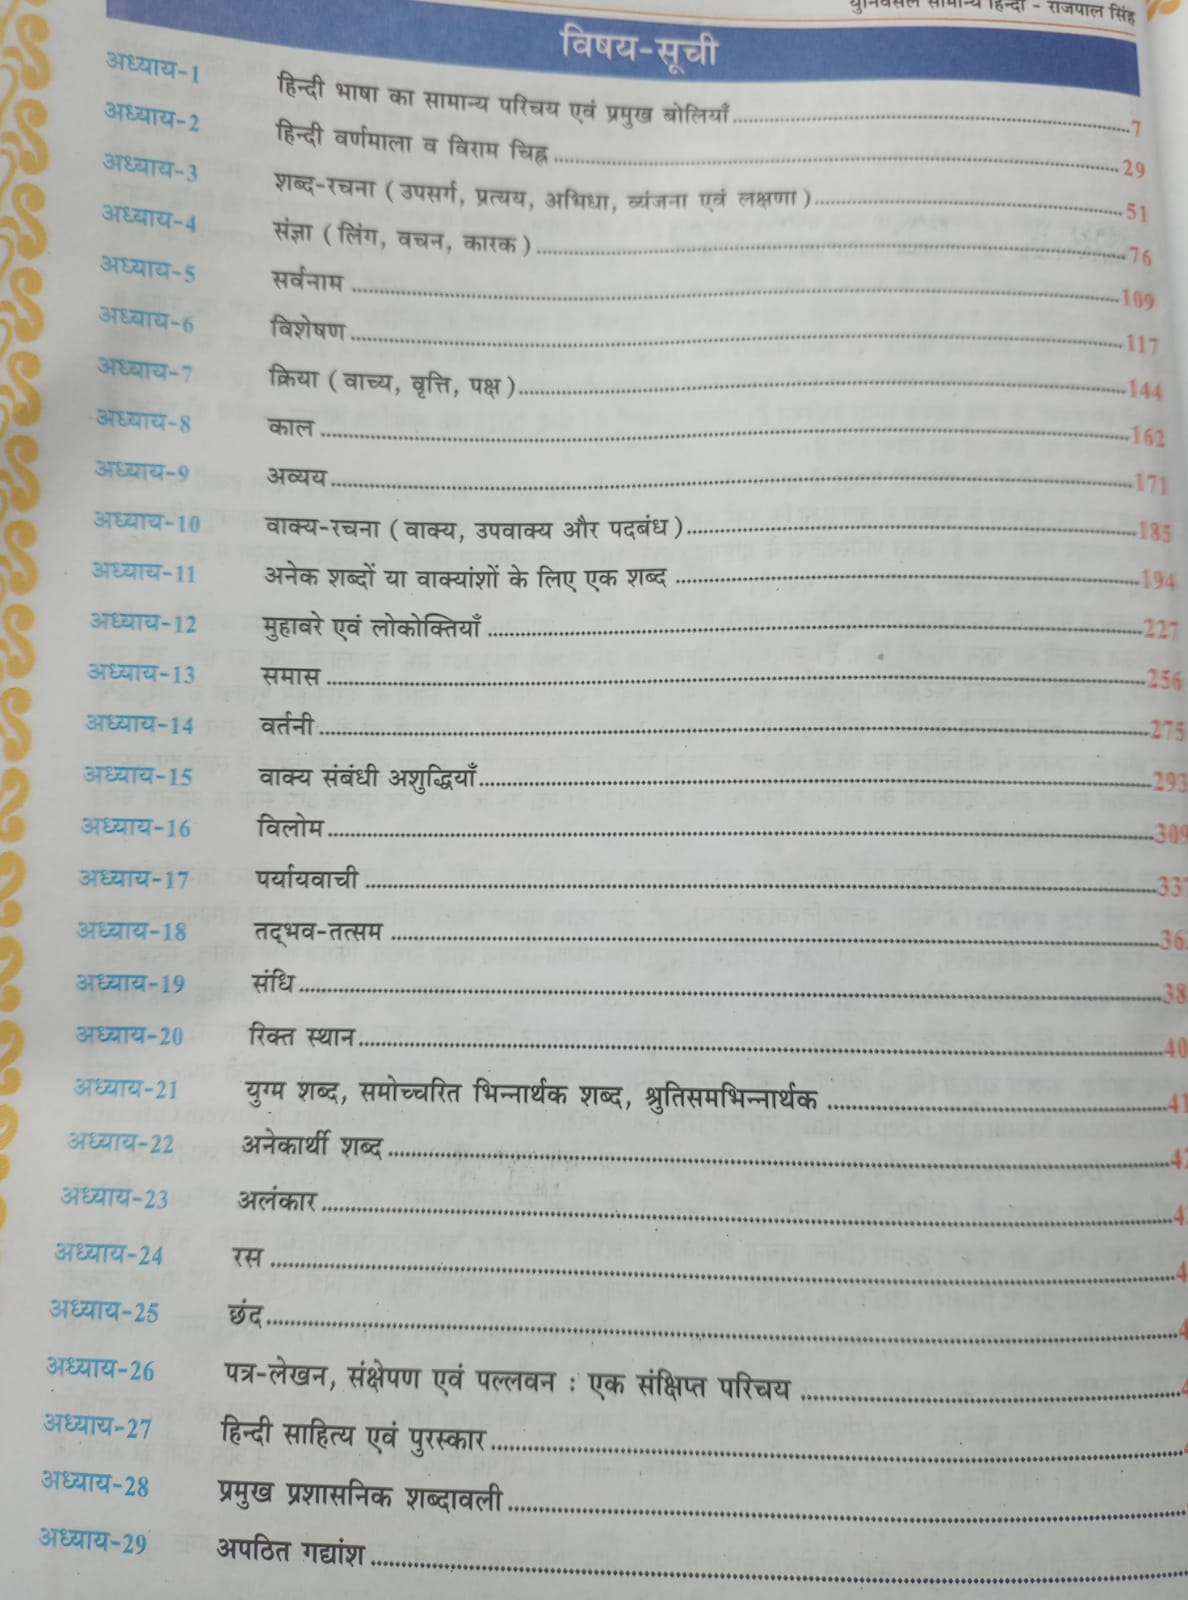 यूनिवर्सल सामान्य हिन्दी - राजपाल सिंह
विषय-सूची
अध्याय-1 हिन्दी भाषा का सामान्य परिचय एवं प्रमुख बोलियाँ 7
अध्याय-2 हिन्दी वर्णमाला व विराम चिह्न 29
अध्याय-3 शब्द-रचना (उपसर्ग, प्रत्यय, अभिधा, व्यंजना एवं लक्षणा) 51
अध्याय-4 संज्ञा (लिंग, वचन, कारक) 76
अध्याय-5 सर्वनाम 109
अध्याय-6 विशेषण 117
अध्याय-7 क्रिया (वाच्य, वृत्ति, पक्ष) 144
अध्याय-8 काल 162
अध्याय-9 अव्यय 171
अध्याय-10 वाक्य-रचना (वाक्य, उपवाक्य और पदबंध) 185
अध्याय-11 अनेक शब्दों या वाक्यांशों के लिए एक शब्द 194
अध्याय-12 मुहाबरे एवं लोकोक्तियाँ 227
अध्याय-13 समास 256
अध्याय-14 वर्तनी 275
अध्याय-15 वाक्य संबंधी अशुद्धियाँ 293
अध्याय-16 विलोम 309
अध्याय-17 पर्यायवाची 337
अध्याय-18 तद्भव-तत्सम
अध्याय-19 संधि
अध्याय-20 रिक्त स्थान
अध्याय-21 युग्म शब्द, समोच्चरित भिन्नार्थक शब्द, श्रुतिसमभिन्नार्थक
अध्याय-22 अनेकार्थी शब्द
अध्याय-23 अलंकार
अध्याय-24 रस
अध्याय-25 छंद
अध्याय-26 पत्र-लेखन, संक्षेपण एवं पल्लवन : एक संक्षिप्त परिचय
अध्याय-27 हिन्दी साहित्य एवं पुरस्कार
अध्याय-28 प्रमुख प्रशासनिक शब्दावली
अध्याय-29 अपठित गद्यांश